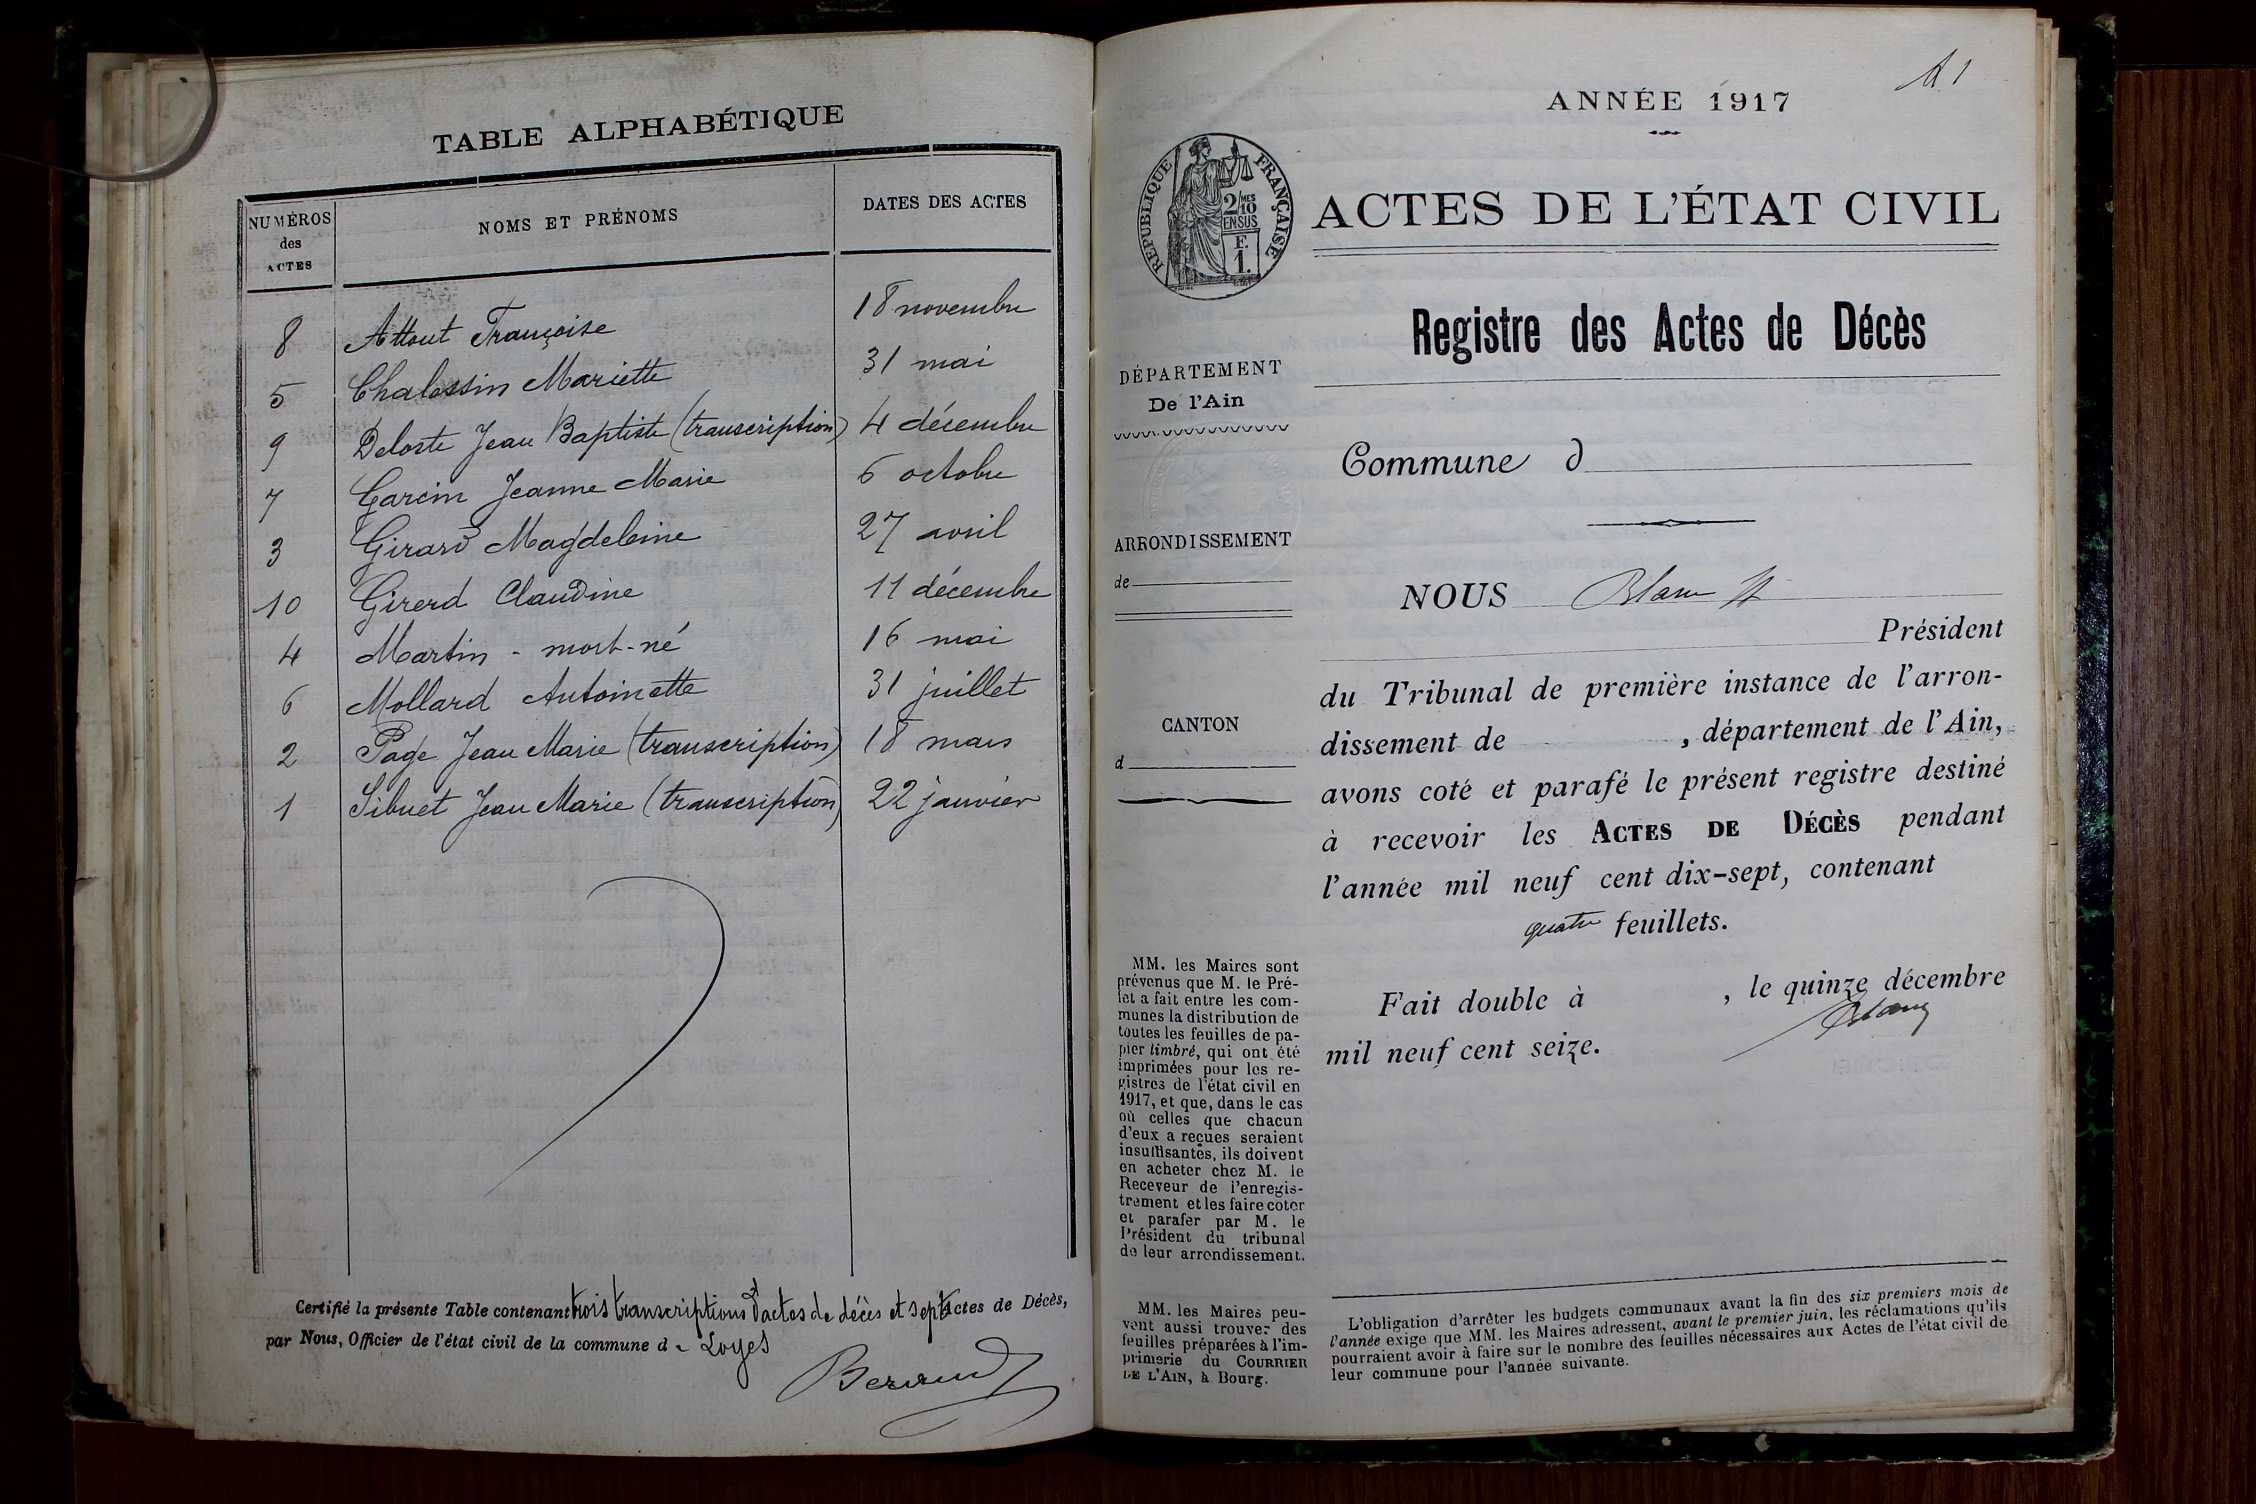 TABLE ALPHABÉTIQUE
NUMÉROS des ACTES
NOMS ET PRÉNOMS
DATES DES ACTES
8 Attout Françoise 18 novembre
5 Chalessin Mariette 31 mai
9 Deloste Jean Baptiste (transcription) 4 décembre
7 Garcin Jeanne Marie 6 octobre
3 Girard Magdeleine 27 avril
10 Girerd Claudine 11 décembre
4 Martin - mort-né 16 mai
6 Mollard Antoinette 31 juillet
2 Page Jean Marie (transcription) 18 mars
1 Sibuet Jean Marie (transcription) 22 janvier
Certifié la présente Table contenant trois transcriptions d'actes de décès et sept Actes de Décès,
par Nous, Officier de l'état civil de la commune de Loyes
ANNÉE 1917
RÉPUBLIQUE FRANÇAISE
2/10 MES
EN SUS
F.
1.
ACTES DE L'ÉTAT CIVIL
Registre des Actes de Décès
DÉPARTEMENT
De l'Ain
ARRONDISSEMENT
de
CANTON
d
MM. les Maires sont
prévenus que M. le Pré-
fet a fait entre les com-
munes la distribution de
toutes les feuilles de pa-
pier timbré, qui ont été
imprimées pour les re-
gistres de l'état civil en
1917, et que, dans le cas
où celles que chacun
d'eux a reçues seraient
insuffisantes, ils doivent
en acheter chez M. le
Receveur de l'enregis-
trement et les faire coter
et parafer par M. le
Président du tribunal
de leur arrondissement.
MM. les Maires peu-
vent aussi trouver des
feuilles préparées à l'im-
primerie du COURRIER
DE L'AIN, à Bourg.
Commune d
NOUS
Président
du Tribunal de première instance de l'arron-
dissement de , département de l'Ain,
avons coté et parafé le présent registre destiné
à recevoir les ACTES DE DÉCÈS pendant
l'année mil neuf cent dix-sept, contenant
quatre feuillets.
Fait double à , le quinze décembre
mil neuf cent seize.
L'obligation d'arrêter les budgets communaux avant la fin des six premiers mois de
l'année exige que MM. les Maires adressent, avant le premier juin, les réclamations qu'ils
pourraient avoir à faire sur le nombre des feuilles nécessaires aux Actes de l'état civil de
leur commune pour l'année suivante.